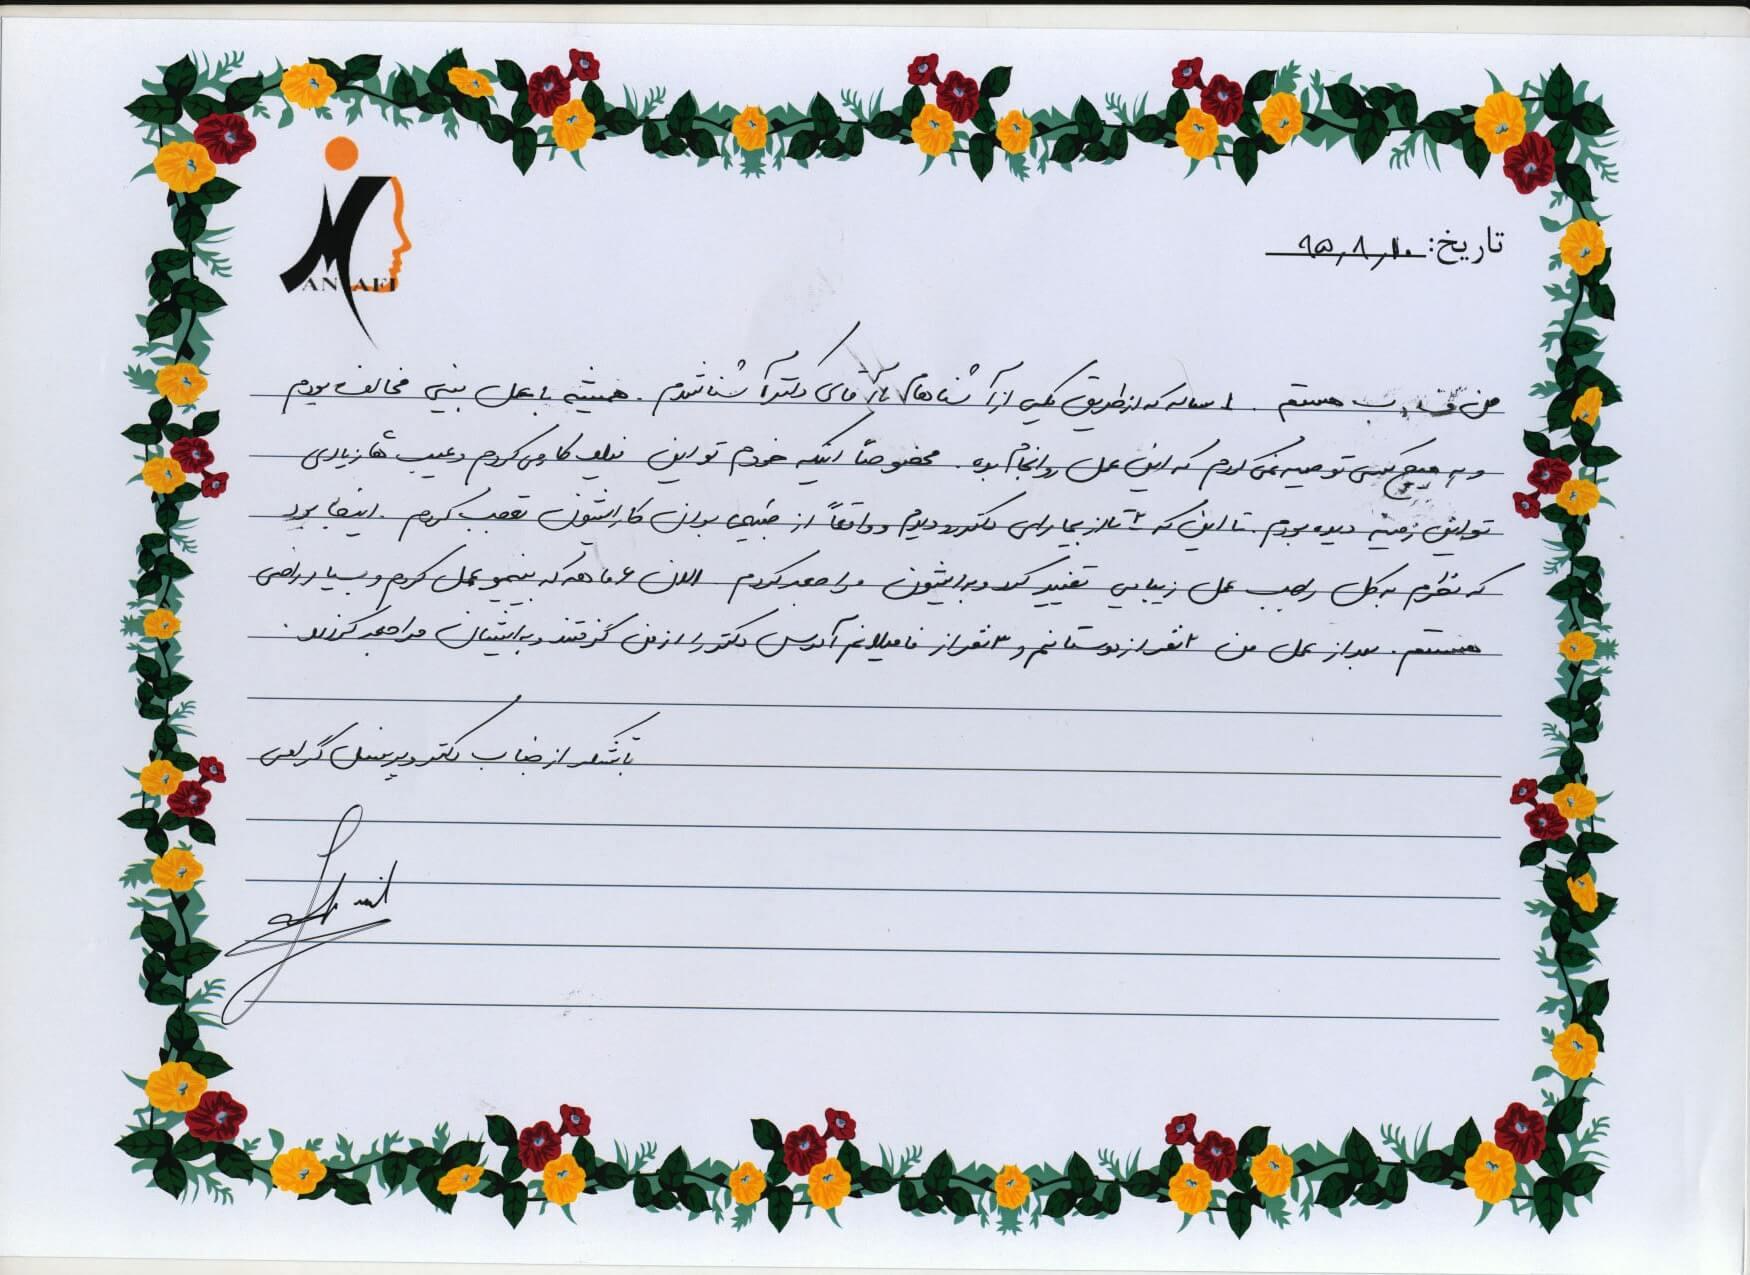 MANAFI
تاریخ: ۹۵٫۸٫۱۰
من ف . ب هستم . ۱ ساله که از طریق یکی از آشناهام با آقای دکتر آشنا شدم . همیشه با عمل بینی مخالف بودم
و به هیچ کسی توصیه نمی کردم که این عمل رو انجام بده . مخصوصاً اینکه خودم تو این فیلد کار می کردم و عیب های زیادی
تو این زمینه دیده بودم . تا این که ۲ تا از بیمارای دکتر رو دیدم و واقعاً از طبیعی بودن کار ایشون تعجب کردم . اینجا بود
که نظرم به کل راجب عمل زیبایی تغییر کرد و به ایشون مراجعه کردم . الان ۶ ماهه که بینیمو عمل کردم و بسیار راضی
هستم . بعد از عمل من ۲ نفر از دوستانم و ۳ نفر از فامیلام آدرس دکتر را از من گرفتند و به ایشان مراجعه کردند .
با تشکر از جناب دکتر و پرسنل گرامی